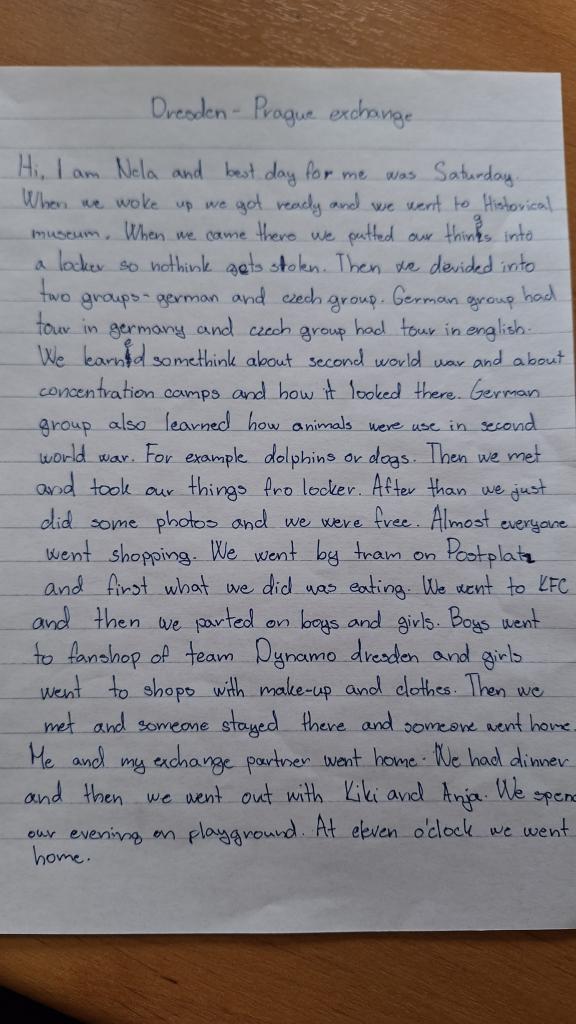 Dresden - Prague exchange
Hi, I am Nela and best day for me was Saturday.
When we woke up we got ready and we went to Historical
museum. When we came there we putted our things into
a locker so nothink gets stolen. Then we devided into
two groups - german and czech group. German group had
tour in germany and czech group had tour in english.
We learned somethink about second world war and about
concentration camps and how it looked there. German
group also learned how animals were use in second
world war. For example dolphins or dogs. Then we met
and took our things fro locker. After than we just
did some photos and we were free. Almost everyone
went shopping. We went by tram on Postplatz
and first what we did was eating. We went to KFC
and then we parted on boys and girls. Boys went
to fanshop of team Dynamo dresden and girls
went to shops with make-up and clothes. Then we
met and someone stayed there and someone went home.
Me and my exchange partner went home. We had dinner
and then we went out with Kiki and Anja. We spen
our evening on playground. At eleven o'clock we went
home.